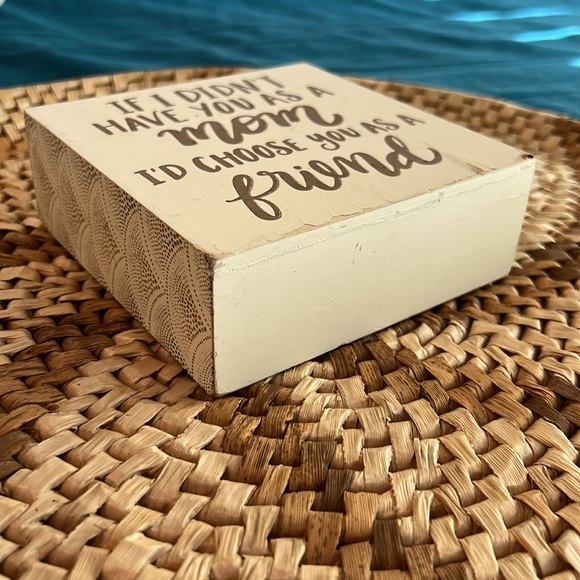 IF I DIDN'T
HAVE YOU AS A
mom
I'D CHOOSE YOU AS A
friend